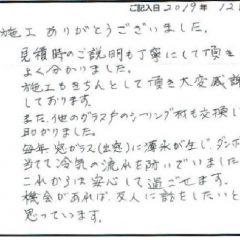 ご記入日 2019年 12月
施工ありがとうございました。
見積時のご説明も丁寧にして頂き
よく分かりました。
施工もきちんとして頂き大変感謝
しております。
また、他のグラス戸のシーリング材も交換し
助かりました。
毎年 窓ガラス(出窓)に薄氷が生じ、ダンボ
当てて冷気の流れを防いでいました
これからは安心して過ごせます。
機会があれば、友人に話をしたいと
思っています。